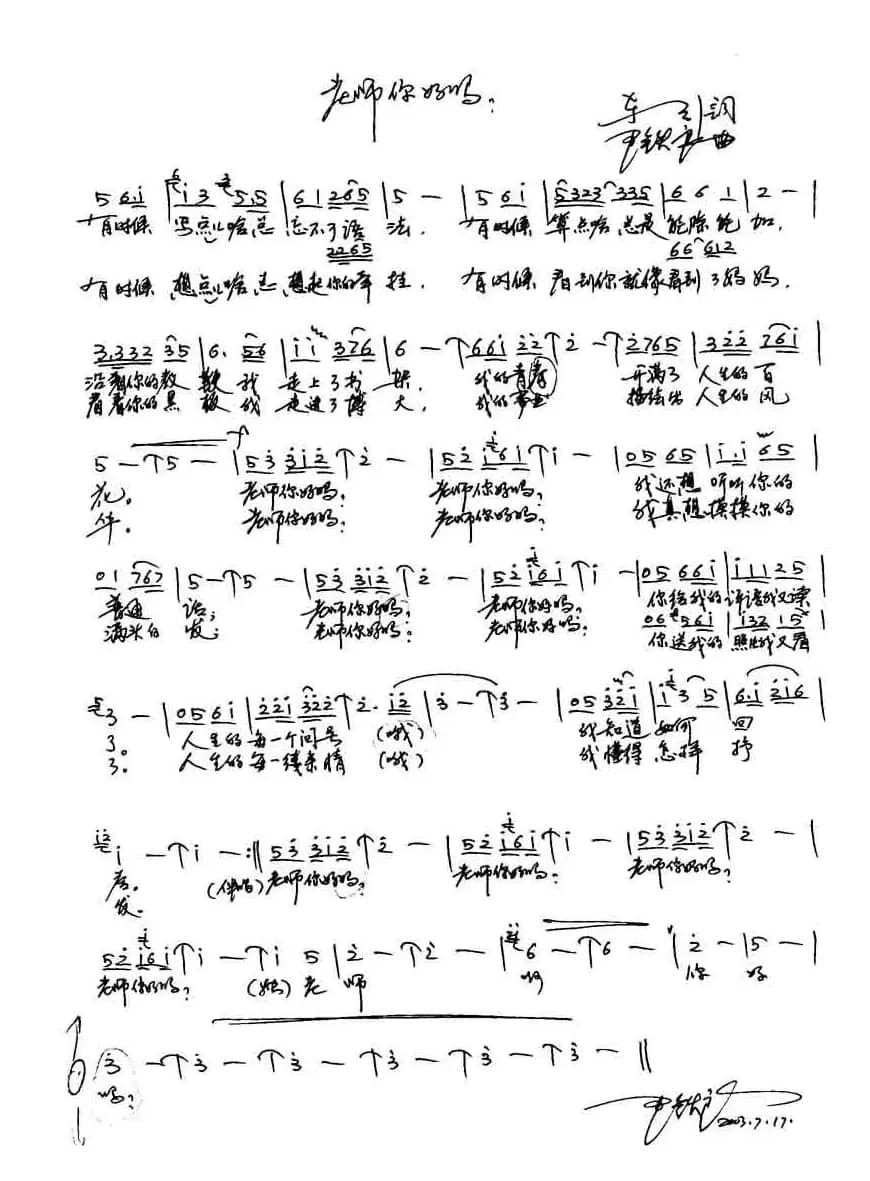 老师你好吗?
车行词
尹铁良曲
5 6.i | i 3 5.5 | 6 1 265 | 5 — | 5 6i | 5323 335 | 6 6 1 | 2 — |
有时候 写点儿啥总 忘不了语 法. 有时候 算点啥总是 能除能加.
2265 66 612
有时候 想点儿啥总 想起你的牵 挂. 有时候 看到你就像看到了妈妈.
3.332 35 | 6. 56 | i i 376 | 6 — ↑ 66i 22 ↑ 2 — ↑ 2765 | 322 76i |
沿着你的教 鞭 我 走上了书 架. 我的青春 开满了 人生的百
看着你的黑 板 我 走进了博 大. 我的事业 描绘出 人生的风
5 — ↑ 5 — | 53 312 ↑ 2 — | 52 i6i ↑ i — | 05 65 | i.i 65 |
花。 老师你好吗? 老师你好吗? 我还想 听听你的
华。 老师你好吗? 老师你好吗? 我真想 摸摸你的
01 767 | 5 — ↑ 5 — | 53 312 ↑ 2 — | 52 i6i ↑ i — | 05 66i | i1125
普通 话; 老师你好吗? 老师你好吗? 你给我的 评语我又读
06 56i | i32 15
满头白 发; 老师你好吗? 老师你好吗? 你送我的 照片我又看
3 — | 056i | 22i 322 ↑ 2. i2 | 3 — ↑ 3 — | 05 32i | i 3 5 | 6.i 2i6 |
了。 人生的 每一个问号 (哦) 我知道 如何 回
了。 人生的 每一缕亲情 (哦) 我懂得 怎样 抒
i — ↑ i — :|| 53 312 ↑ 2 — | 52 i6i ↑ i — | 53 312 ↑ 2 — |
答。 (伴唱) 老师你好吗? 老师你好吗? 老师你好吗?
发。
52 i6i ↑ i — ↑ i 5 | 2 — ↑ 2 — | 6 — ↑ 6 — | 2 — | 5 — |
老师你好吗? (独) 老 师 啊 你 好
3 — ↑ 3 — ↑ 3 — ↑ 3 — ↑ 3 — ↑ 3 — ||
吗?
尹铁良
2003.7.17.